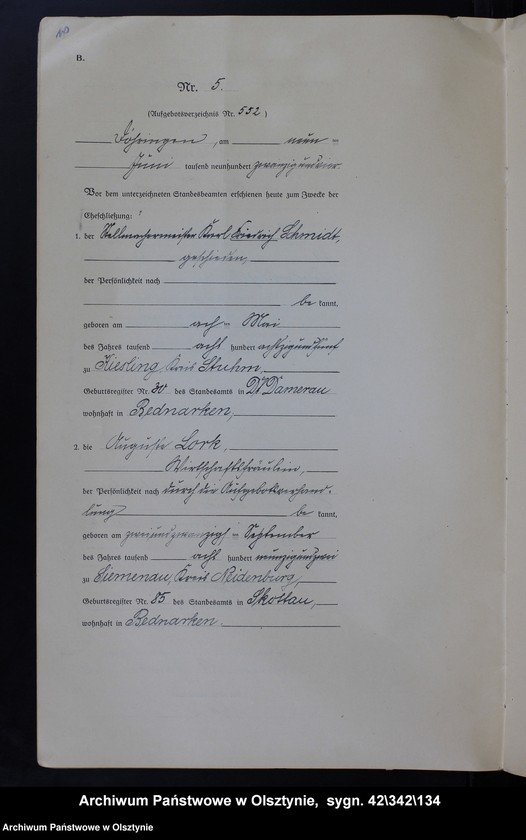 B.
Nr. 5.
(Aufgebotsverzeichnis Nr. 552)
Döhringen, am neun =
Juni tausend neunhundert zwanzigundvier
Vor dem unterzeichneten Standesbeamten erschienen heute zum Zwecke der
Eheschließung:
1. der Stellmachermeister Karl Friedrich Schmidt,
geschieden,
der Persönlichkeit nach
be kannt,
geboren am acht = Mai
des Jahres tausend acht hundert achtzigundfünf
zu Kiesling, Kreis Stuhm,
Geburtsregister Nr. 30 des Standesamts in Dt Damerau
wohnhaft in Bednarken,
2. die Auguste Lork,
Wirtschaftsfräulein,
der Persönlichkeit nach durch die Aufgebotsverhand-
lung be kannt,
geboren am zweiundzwanzigst = September
des Jahres tausend acht hundert neunzigundzwei
zu Siemenau, Kreis Neidenburg,
Geburtsregister Nr. 85 des Standesamts in Skottau,
wohnhaft in Bednarken.
Archiwum Państwowe w Olsztynie, sygn. 42\342\134
Archiwum Państwowe w Olsztynie